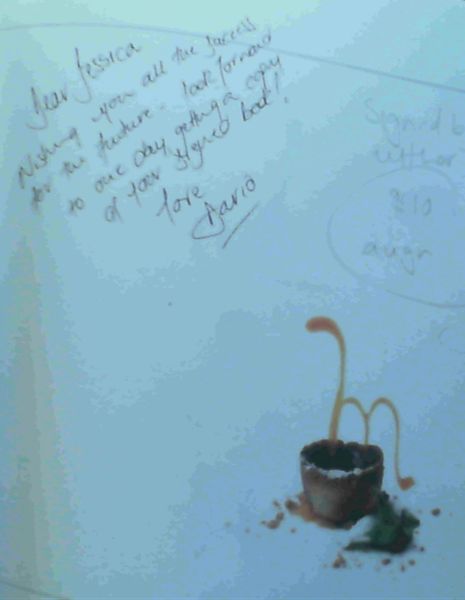 Dear Jessica
Wishing you all the success
for the future. look forward
to one day getting a copy
of your signed book!
love
Dario
Signed b
Author
$10